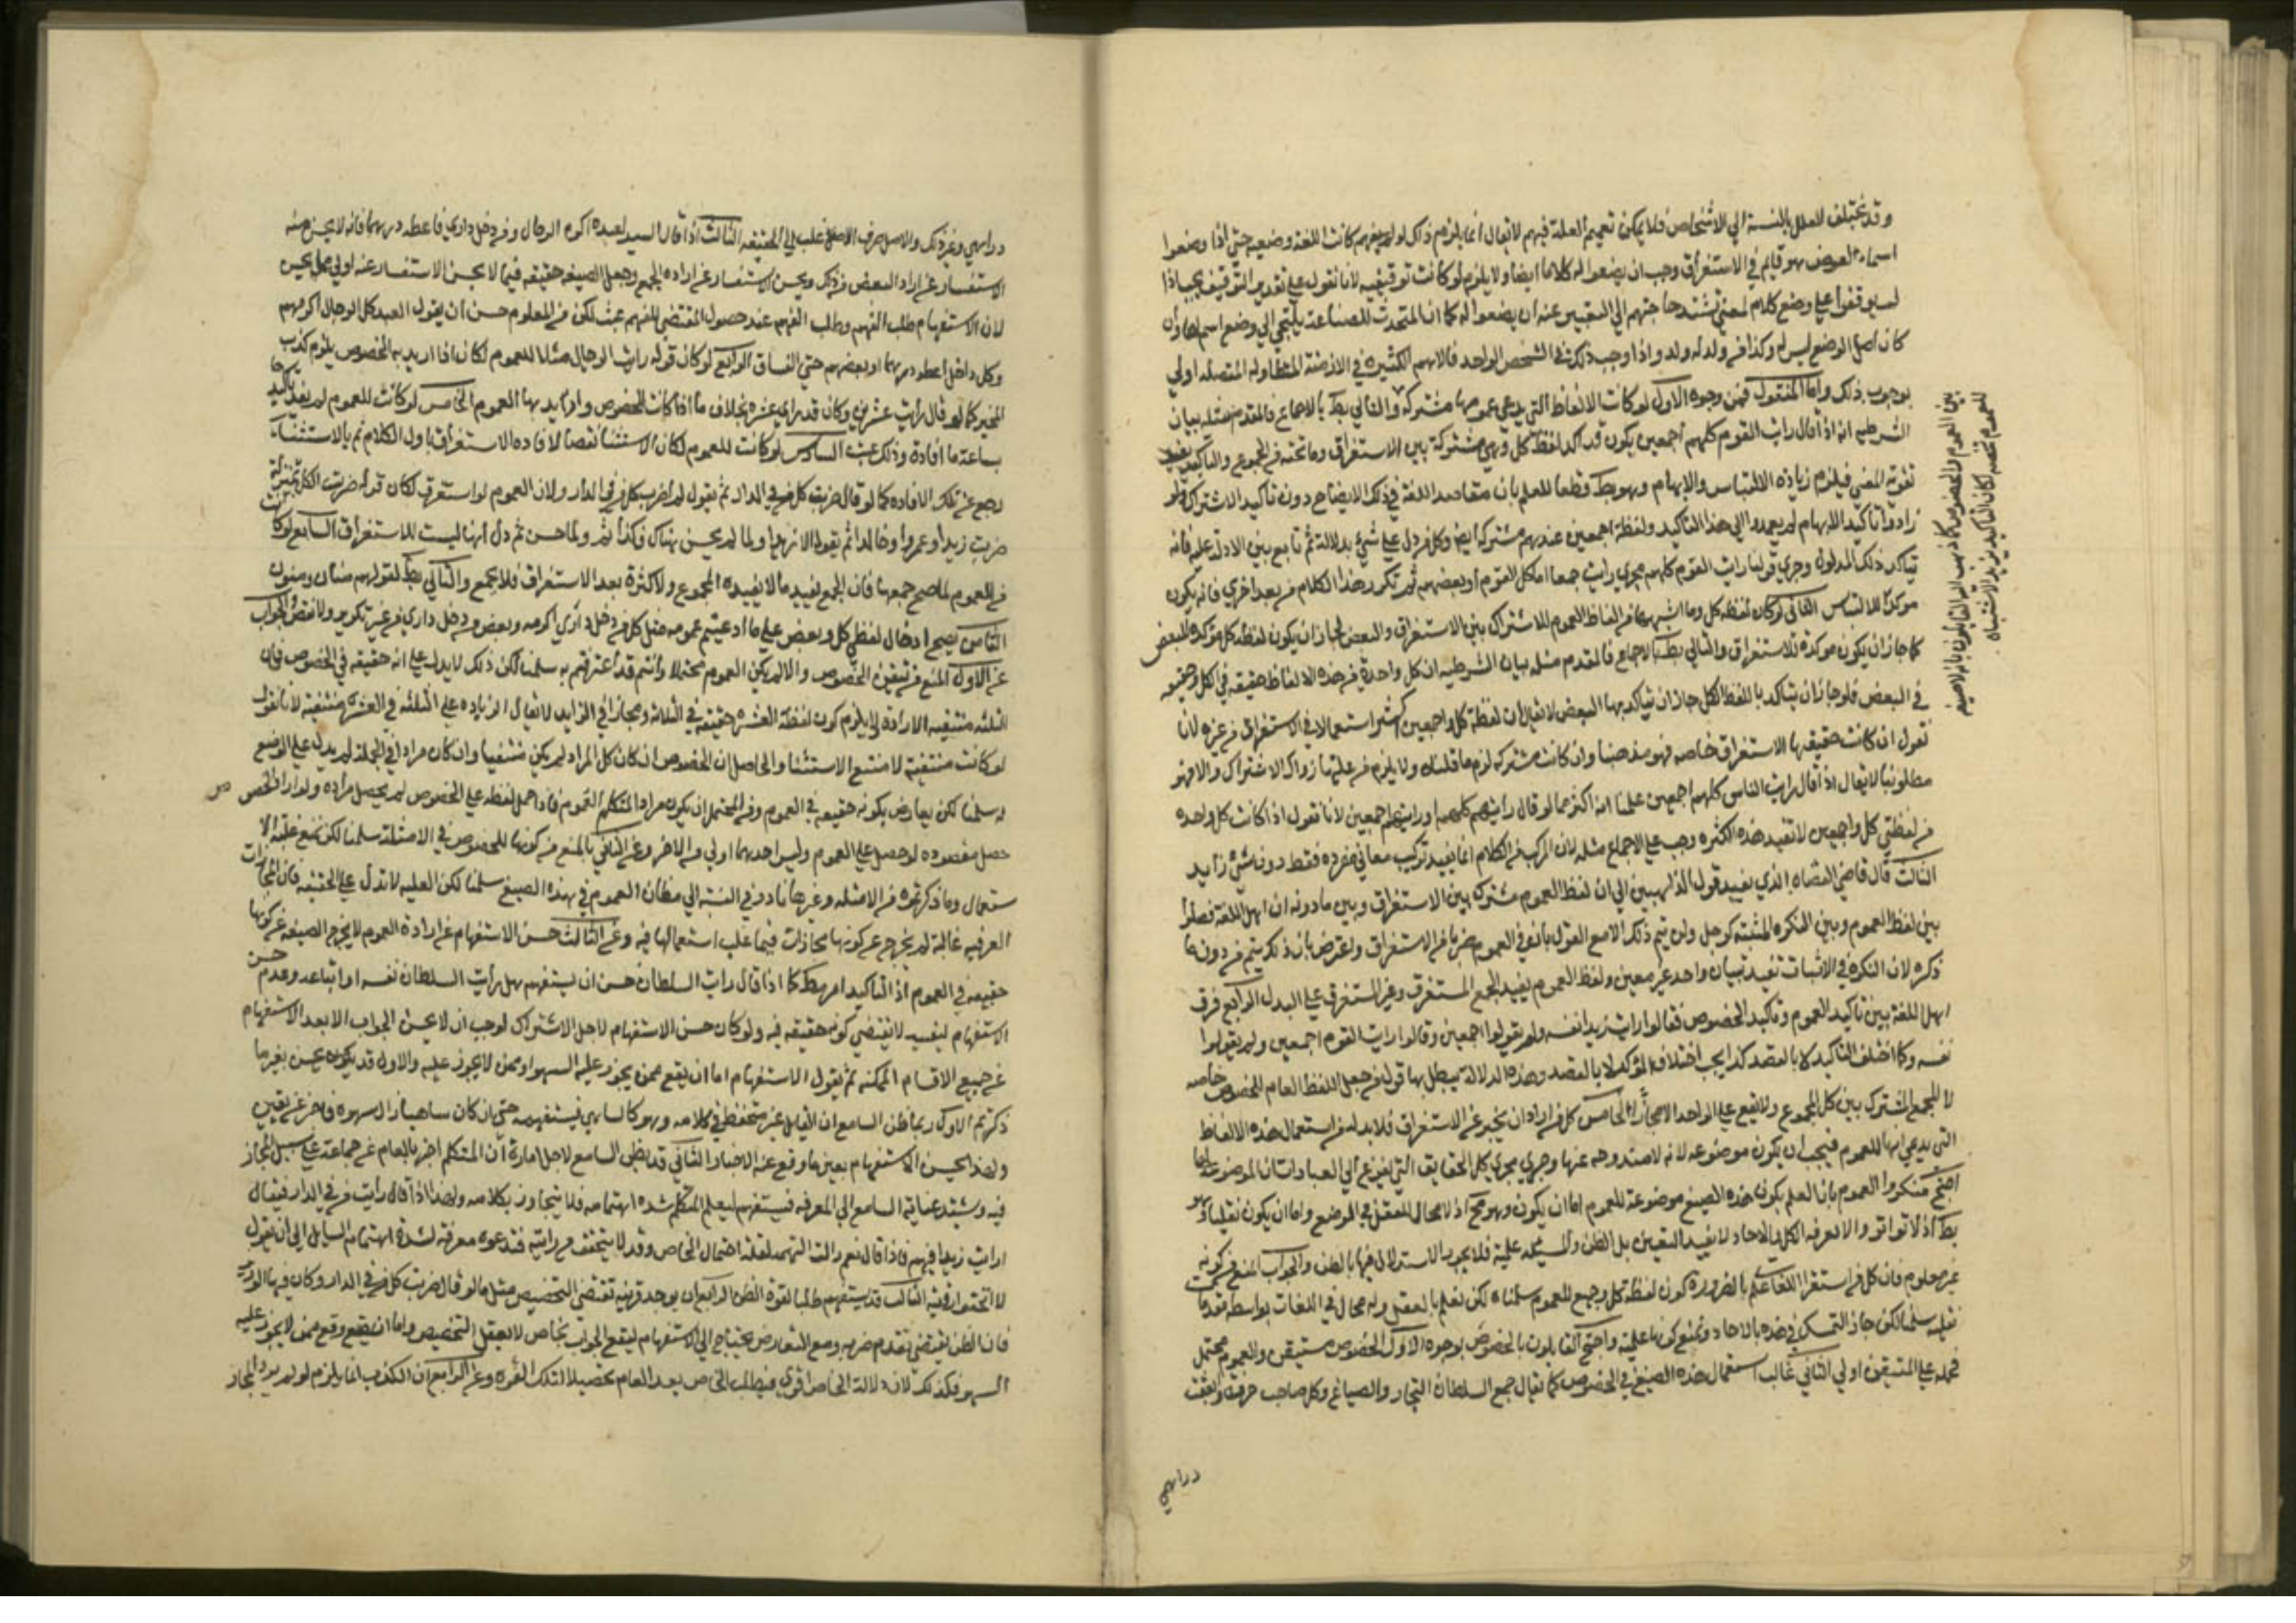 وقد تختلف العلل بالنسبة الي الاشخاص فلا يمكن تعميم العلة فيهم لا يقال انما يلزم ذلك لو لم كانت اللغة وضعيه حتي اذا وضعوا
اسماء هو قايم في الاستغراق وجب ان يضعوا له كلاما ايضا ولا يلزم لو كانت توقيفيه لانا نقول علي تقدير التوقيف يجب اذا
لم يوقفوا علي وضع كلام لمعني تشتد حاجتهم الي التعبير عنه ان يضعوا له كما ان المتحدث للصناعة يلتجي الي وضع اسم لها وان
كان اصل الوضع ليس له وكذا من ولد له ولد واذا وجب ذلك في الشخص الواحد فالامم الكثيره في الازمنة المتطاوله المتصله اولي
بوجوب ذلك واما المنقول فمن وجوه الاول لو كانت الالفاظ التي يدعي عمومها مشتركة والتالي بط بالاجماع فالمقدم مثله بيان
الشرطيه انه اذا قال رايت القوم كلهم اجمعين يكون قد اكد لفظ كل وهي مشتركة بين الاستغراق وما تحته من الجموع والتاكيد يفيد
تقوية المعني فيلزم زيادة الالتباس والابهام وهو بط قطعا للعلم بان مقاصد اللغة في ذلك الايضاح دون تاكيد الاشتراك ولو
زادوا تاكيد الابهام لم يعمدوا الي هذا التاكيد ولفظة اجمعين عندهم مشتركة ايضا وكل من دل علي شي بدلالة ثم تابع بين الادلة عليه فانه
يتاكد ذلك المدلول وجري قولنا رايت القوم كلهم مجري رايت جمعا اما كل القوم او بعضهم ثم تكرر هذا الكلام مرة بعد اخري فانه يكون
موكدا للالتباس الثاني لو كان لفظه كل وما اشبهها من الفاظ العموم للاشتراك بين الاستغراق والبعض لجاز ان يكون لفظة كل موكدة للبعض
كما جاز ان يكون موكدة للاستغراق والتالي بط بالاجماع فالمقدم مثله بيان الشرطيه ان كل واحدة من هذه الالفاظ حقيقه في الكل وحقيقه
في البعض فلو جاز ان يتاكد باللفظ الكل جاز ان يتاكد بها البعض لا يقال ان لفظة كل واجمعين اكثر استعمالا في الاستغراق من غيره لانا
نقول ان كانت حقيقتها الاستغراق خاصه فهو مذهبنا وان كانت مشتركه لزم ما قلناه ولا يلزم من غلبتها زوال الاشتراك والا فهو
مطلوبنا لا يقال اذا قال رايت الناس كلهم اجمعين علمنا انه اكثر مما لو قال رايتهم كلهم او رايتهم اجمعين لانا نقول اذا كانت كل واحده
من لفظتي كل واجمعين لا تفيد هذه الكثره وجب علي الاجماع مثله لان المركب من الكلام انما يفيد تركيب معاني مفرده فقط دون شي زايد
الثالث قال قاضي القضاه الذي يفيد قول الذاهبين الي ان لفظ العموم مشترك بين الاستغراق وبين ما دونه ان اهل اللغة فصلوا
بين لفظ العموم وبين النكره المثبته كرجل ولن يتم ذلك الا مع القول بانه في العموم من الاستغراق واعترض بان ذلك يتم من دون ما
ذكره لان النكره في الاثبات تفيد تبيان واحد غير معين ولفظ العموم يفيد الجمع المستغرق وغير المستغرق علي البدل الرابع فرق
اهل اللغة بين تاكيد العموم وتاكيد الخصوص فقالوا رايت زيدا نفسه ولم يقولوا اجمعين وقالوا رايت القوم اجمعين ولم يقولوا
نفسه وكما اختلف التاكيد لا بالقصد كذا يجب اختلاف الموكد لا بالقصد وهذه الدلالة يبطل بها قول من جعل اللفظ العام للخصوص خاصه
لا للجمع المشترك بين كل الجموع ولا يقع علي الواحد الا مجازا الخامس كل من اراد ان يخبر عن الاستغراق فلا بد له من استعمال هذه الالفاظ
التي يدعي انها للعموم فيجب ان يكون موضوعه له لانه لا مندوحه عنها وجري مجري كل الحقايق التي يفزع الي العبارات الموضوعة لها
احتج منكروا العموم بان العلم بكون هذه الصيغ موضوعة للعموم اما ان يكون وهو مح اذ لا مجال للعقل في الوضع واما ان يكون نقليا وهو
بط اذ لا تواتر والا لعرفه الكل والاحاد لا يفيد اليقين بل الظن والمسئله علمية فلا يجوز الاستدلال فيها بالظن والجواب المنع من كونه
غير معلوم فان كل من استقرا اللغات علم بالضرورة كون لفظة كل وجميع للعموم سلمنا لكن نعلم بالعقل وله مجال في اللغات بواسطه مقدمات
نقليه سلمنا لكن جاز التمسك في هذه بالاحاد ونمنع كونها علمية واحتج القايلون بالخصوص بوجوه الاول الخصوص مستيقن والعموم محتمل
فحمله علي المتيقن اولي الثاني غالب استعمال هذه الصيغ في الخصوص كما يقال جمع السلطان التجار والصياغ وكل صاحب حرفة وانفقت
بين العموم والخصوص كما ذهب اليه القايلون بانه لا صيغة
للعموم تخصه لكان التاكيد يزيد الاشتباه
دراهمي
دراهمي وغير ذلك والاصل صرف الاصل الي الحقيقه الثالث اذا قال السيد لعبده اكرم الرجال ومن دخل داري فاعطه درهما فانه لا يحسن منه
الاستفسار عن اراد البعض من ذلك ويحسن الاستفسار عن اراده الجمع وجعل الصيغه حقيقه فيما لا يحسن الاستفسار عنه اولي مما يحسن
لان الاستفهام طلب الفهم وطلب الفهم عند حصول المقتضي للفهم عبث لكن من المعلوم حسن ان يقول العبد كل الرجال اكرمهم
وكل داخل اعطه درهما او بعضهم حتي الفساق الرابع لو كان قوله رايت الرجال مثلا للعموم لكان اذا اريد به الخصوص يلزم كذب
المخبر كما لو قال رايت عشرين وكان قد راي عشره بخلاف ما اذا كانت للخصوص واريد بها العموم الخامس لو كانت للعموم لم يفد تاكيدها
بساعة ما افادة وذلك عبث السادس لو كانت للعموم لكان الاستثنا نقصا لافاده الاستغراق باول الكلام ثم بالاستثناء
رجع عن تلك الافاده كما لو قال ضربت كل من في الدار ثم يقول لم اضرب كل من في الدار ولان العموم لو استغرق لكان قوله ضربت الكل بمنزلة
ضربت زيدا وعمروا وخالدا ثم يقول الا زيدا ولما لم يحسن هناك وكذا ثم ولما حسن ثم دل انها ليست للاستغراق السابع لو كانت
من للعموم لما صح جمعها فان الجمع يفيد ما لا يفيده المجموع ولا كثرة بعد الاستغراق فلا يجمع والتالي بط لقولهم منان ومنون
الثامن يصح ادخال لفظي كل وبعض علي ما ادعيتم عمومه مثل كل من دخل داري اكرمه وبعض من دخل داري من غير تكرير ولا نقض والجواب
عن الاول المنع من تيقن الخصوص والا لم يكن العموم محتملا وانتم قد اعترفتم به سلمنا لكن ذلك لا يدل علي انه حقيقه في الخصوص فان
الثلثه متيقنه الارادة ولا يلزم كون لفظة العشره حقيقة في الثلاثة ومجازا في الزايد لا يقال الزياده علي الثلثه في العشره منتفيه لانا نقول
لو كانت منتفية لامتنع الاستثنا والحاصل ان الخصوص ان كان كل المراد لم يكن متيقنا وان كان مرادا في الجملة لم يدل علي الوضع
له سلمنا لكن يعارض بكونه حقيقه في العموم ومن المحتمل ان يكون مراد المتكلم العموم فاذا حمل لفظه علي الخصوص لم يحصل مراده ولو اراد الخصوص
حصل مقصوده لو حصل علي العموم وليس احدهما اولي من الاخر وعن الثاني بالمنع من كونها للخصوص في الامثلة سلمنا لكن نمنع غلبة الا
ستعمال وما ذكرتموه من الامثله وغيرها نادر في النسبة الي مظان العموم في هذه الصيغ سلمنا لكن الغلبه لا تدل علي الحقيقه فان المجازات
العرفيه غالبة لم يخرج عن كونها مجازات فيما غلب استعمالها فيه وعن الثالث حسن الاستفهام عن ارادة العموم لا يخرج الصيغه عن كونها
حقيقه في العموم اذ التاكيد امر بط كما اذا قال رايت السلطان حسن ان يستفهم هل رايت السلطان نفسه او اتباعه وعدم حسن
الاستفهام ليفسد لا يقتضي كونه حقيقه فيه ولو كان حسن الاستفهام لاجل الاشتراك لوجب ان لا يحسن الجواب الا بعد الاستفهام
عن جميع الاقسام الممكنه ثم يقول الاستفهام اما ان يقع ممن يجوز عليه السهو او ممن لا يجوز عليه والاول قد يكون يحسن بغير ما
ذكرتم الاول ربما ظن السامع ان القايل غير متحفظ في كلامه وهو كالساهي فيستفهمه حتي ان كان ساهيا زال سهوه فاخبر عن يقين
ولهذا يحسن الاستفهام بعين ما وقع عنه الاخبار الثاني قد يظن السامع لاجل امارة ان المتكلم اخبر بالعام عن جماعة علي سبيل المجاز
فيه وتشتد عناية السامع الي المعرفه فيستفهم ليعلم المتكلم شده اهتمامه فلا يتجاوز بكلامه ولهذا اذا قال رايت من في الدار فيقال
ارايت زيدا فيهم فاذا قال نعم زالت التهمه لقلة احتمال الخاص وقد لا يتحقق من رايته فتدعوه معرفة لشدة اهتمام السايل الي ان يقول
لا اتحقق رويته الثالث قد يستفهم طلبا لقوة الظن الرابع ان يوجد قرينه تقتضي التخصيص مثل ما لو قال ضربت كل من في الدار وكان فيها الوزير
فان الظن يقتضي تقدم ضربه ومع التعارض يحتاج الي الاستفهام ليقع الجواب بخاص لا يعقل التخصيص واما ان يقع ممن لا يجوز عليه
السهو فكذلك لان دلالة الخاص اقوي فيطلب الخاص بعد العام تحصيلا لتلك القوه وعن الرابع ان الكذب انما يلزم لو لم يرد المجاز